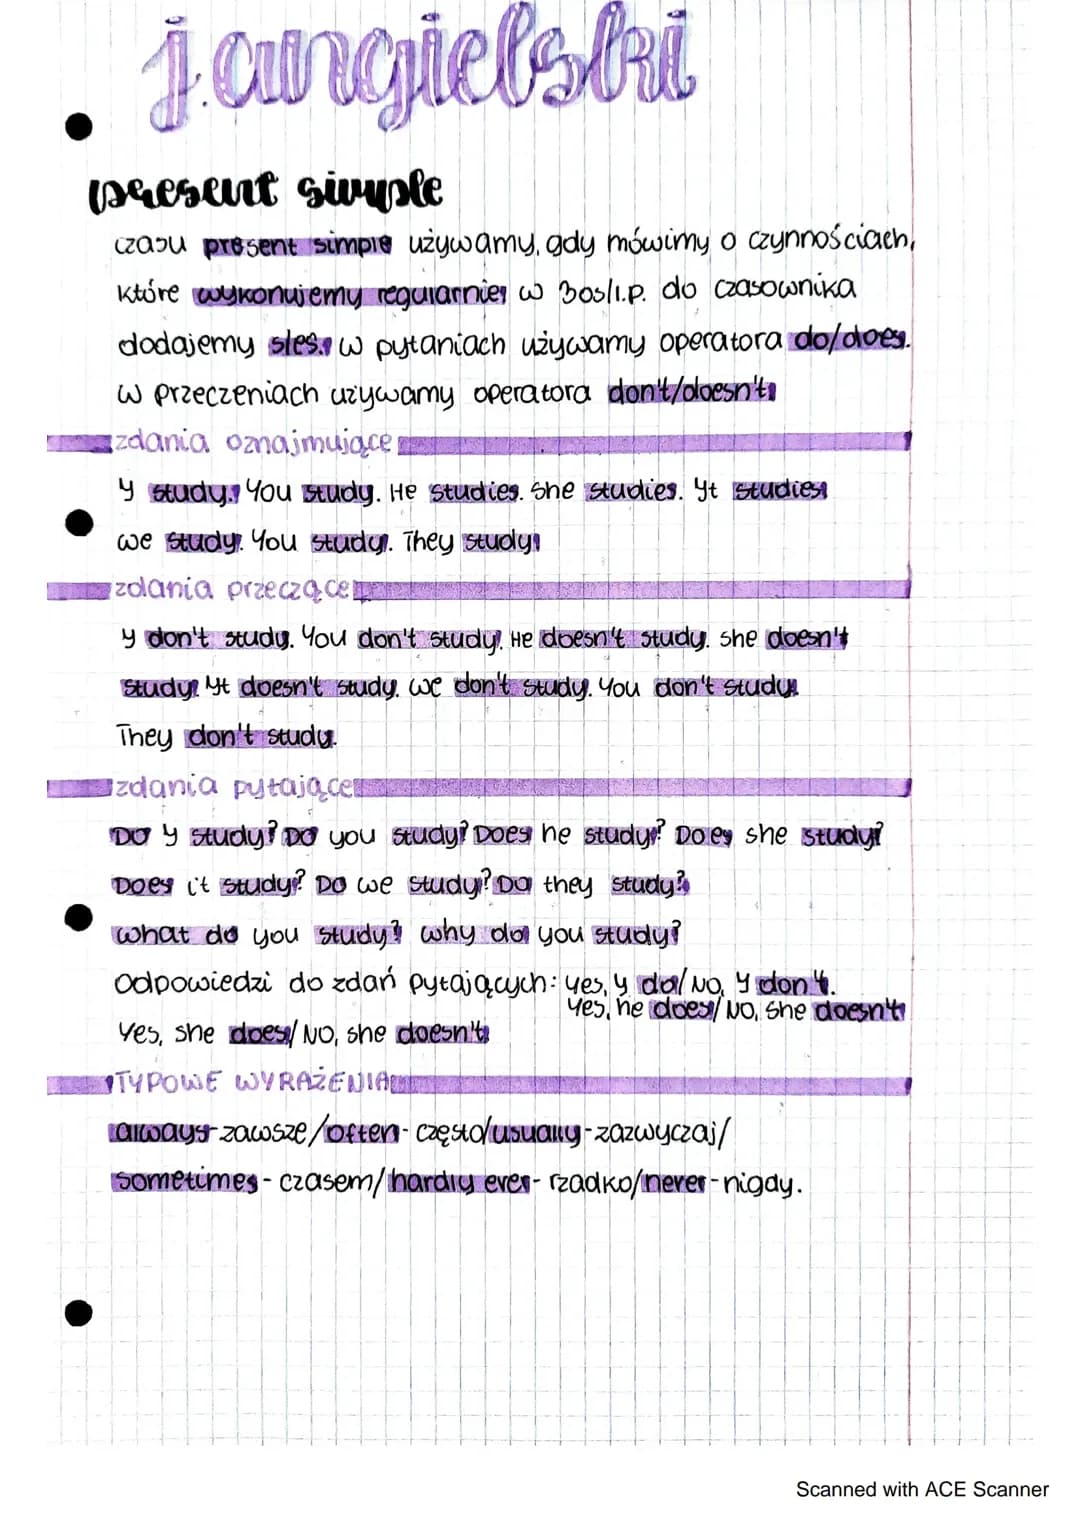 j.angielski
present simple
czasu present simple używamy, gdy mówimy o czynnościach,
które wykonujemy regularnie, w 3os/l.p. do czasownika
dodajemy s/es. w pytaniach używamy operatora do/does.
w przeczeniach używamy operatora don't/doesn't.
zdania oznajmujące
Y study. You study. He studies. She studies. Yt studies.
we study. You study. They study.
zdania przeczące
Y don't study. You don't study. He doesn't study. she doesn't
study. Yt doesn't study. we don't study. You don't study.
They don't study.
zdania pytające
Do Y study? Do you study? Does he study? Does she study?
Does it study? Do we study? Do they study?
what do you study? why do you study?
Odpowiedzi do zdań pytających: yes, Y do/ No, Y don't.
Yes, he does/ No, she doesn't
Yes, she does/ No, she doesn't
TYPOWE WYRAŻENIA
always - zawsze/often - często/usually - zazwyczaj/
sometimes - czasem/ hardly ever - rzadko/never - nigdy.
Scanned with ACE Scanner